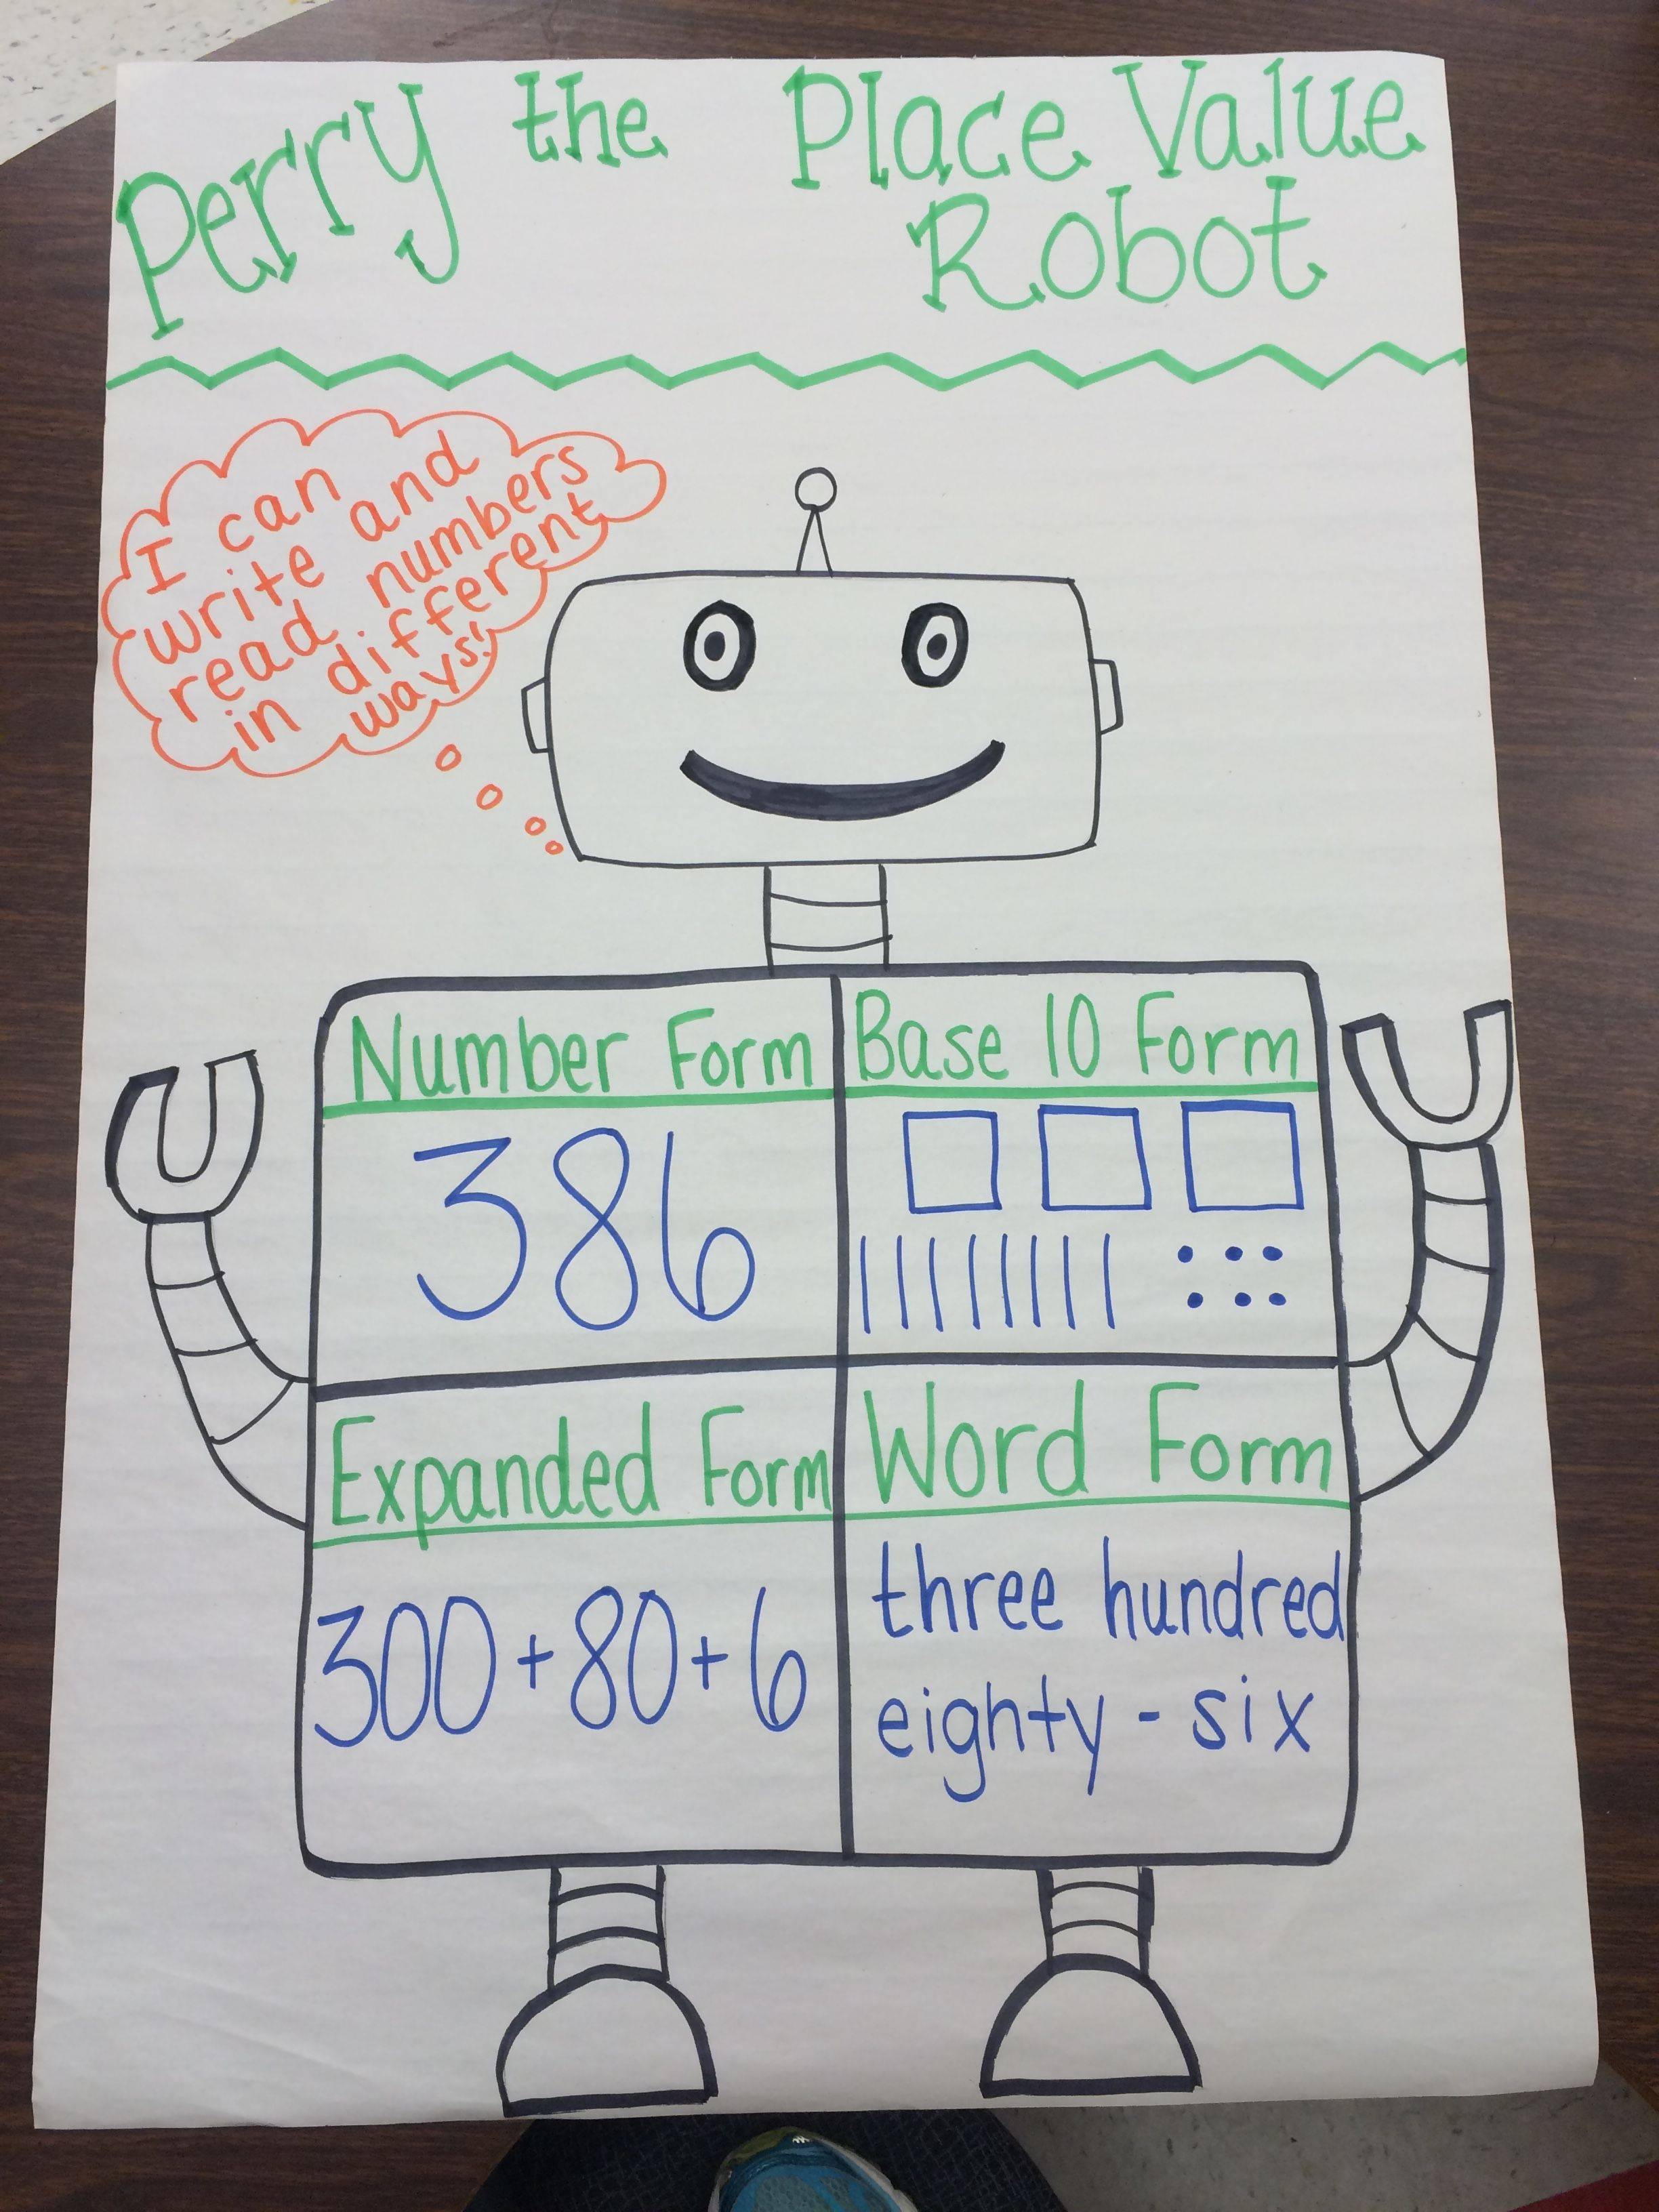 Perry the Place Value
Robot
I can
write and
read numbers
in different
ways!
Number Form
386
Base 10 Form
Expanded Form
300+80+6
Word Form
three hundred
eighty-six